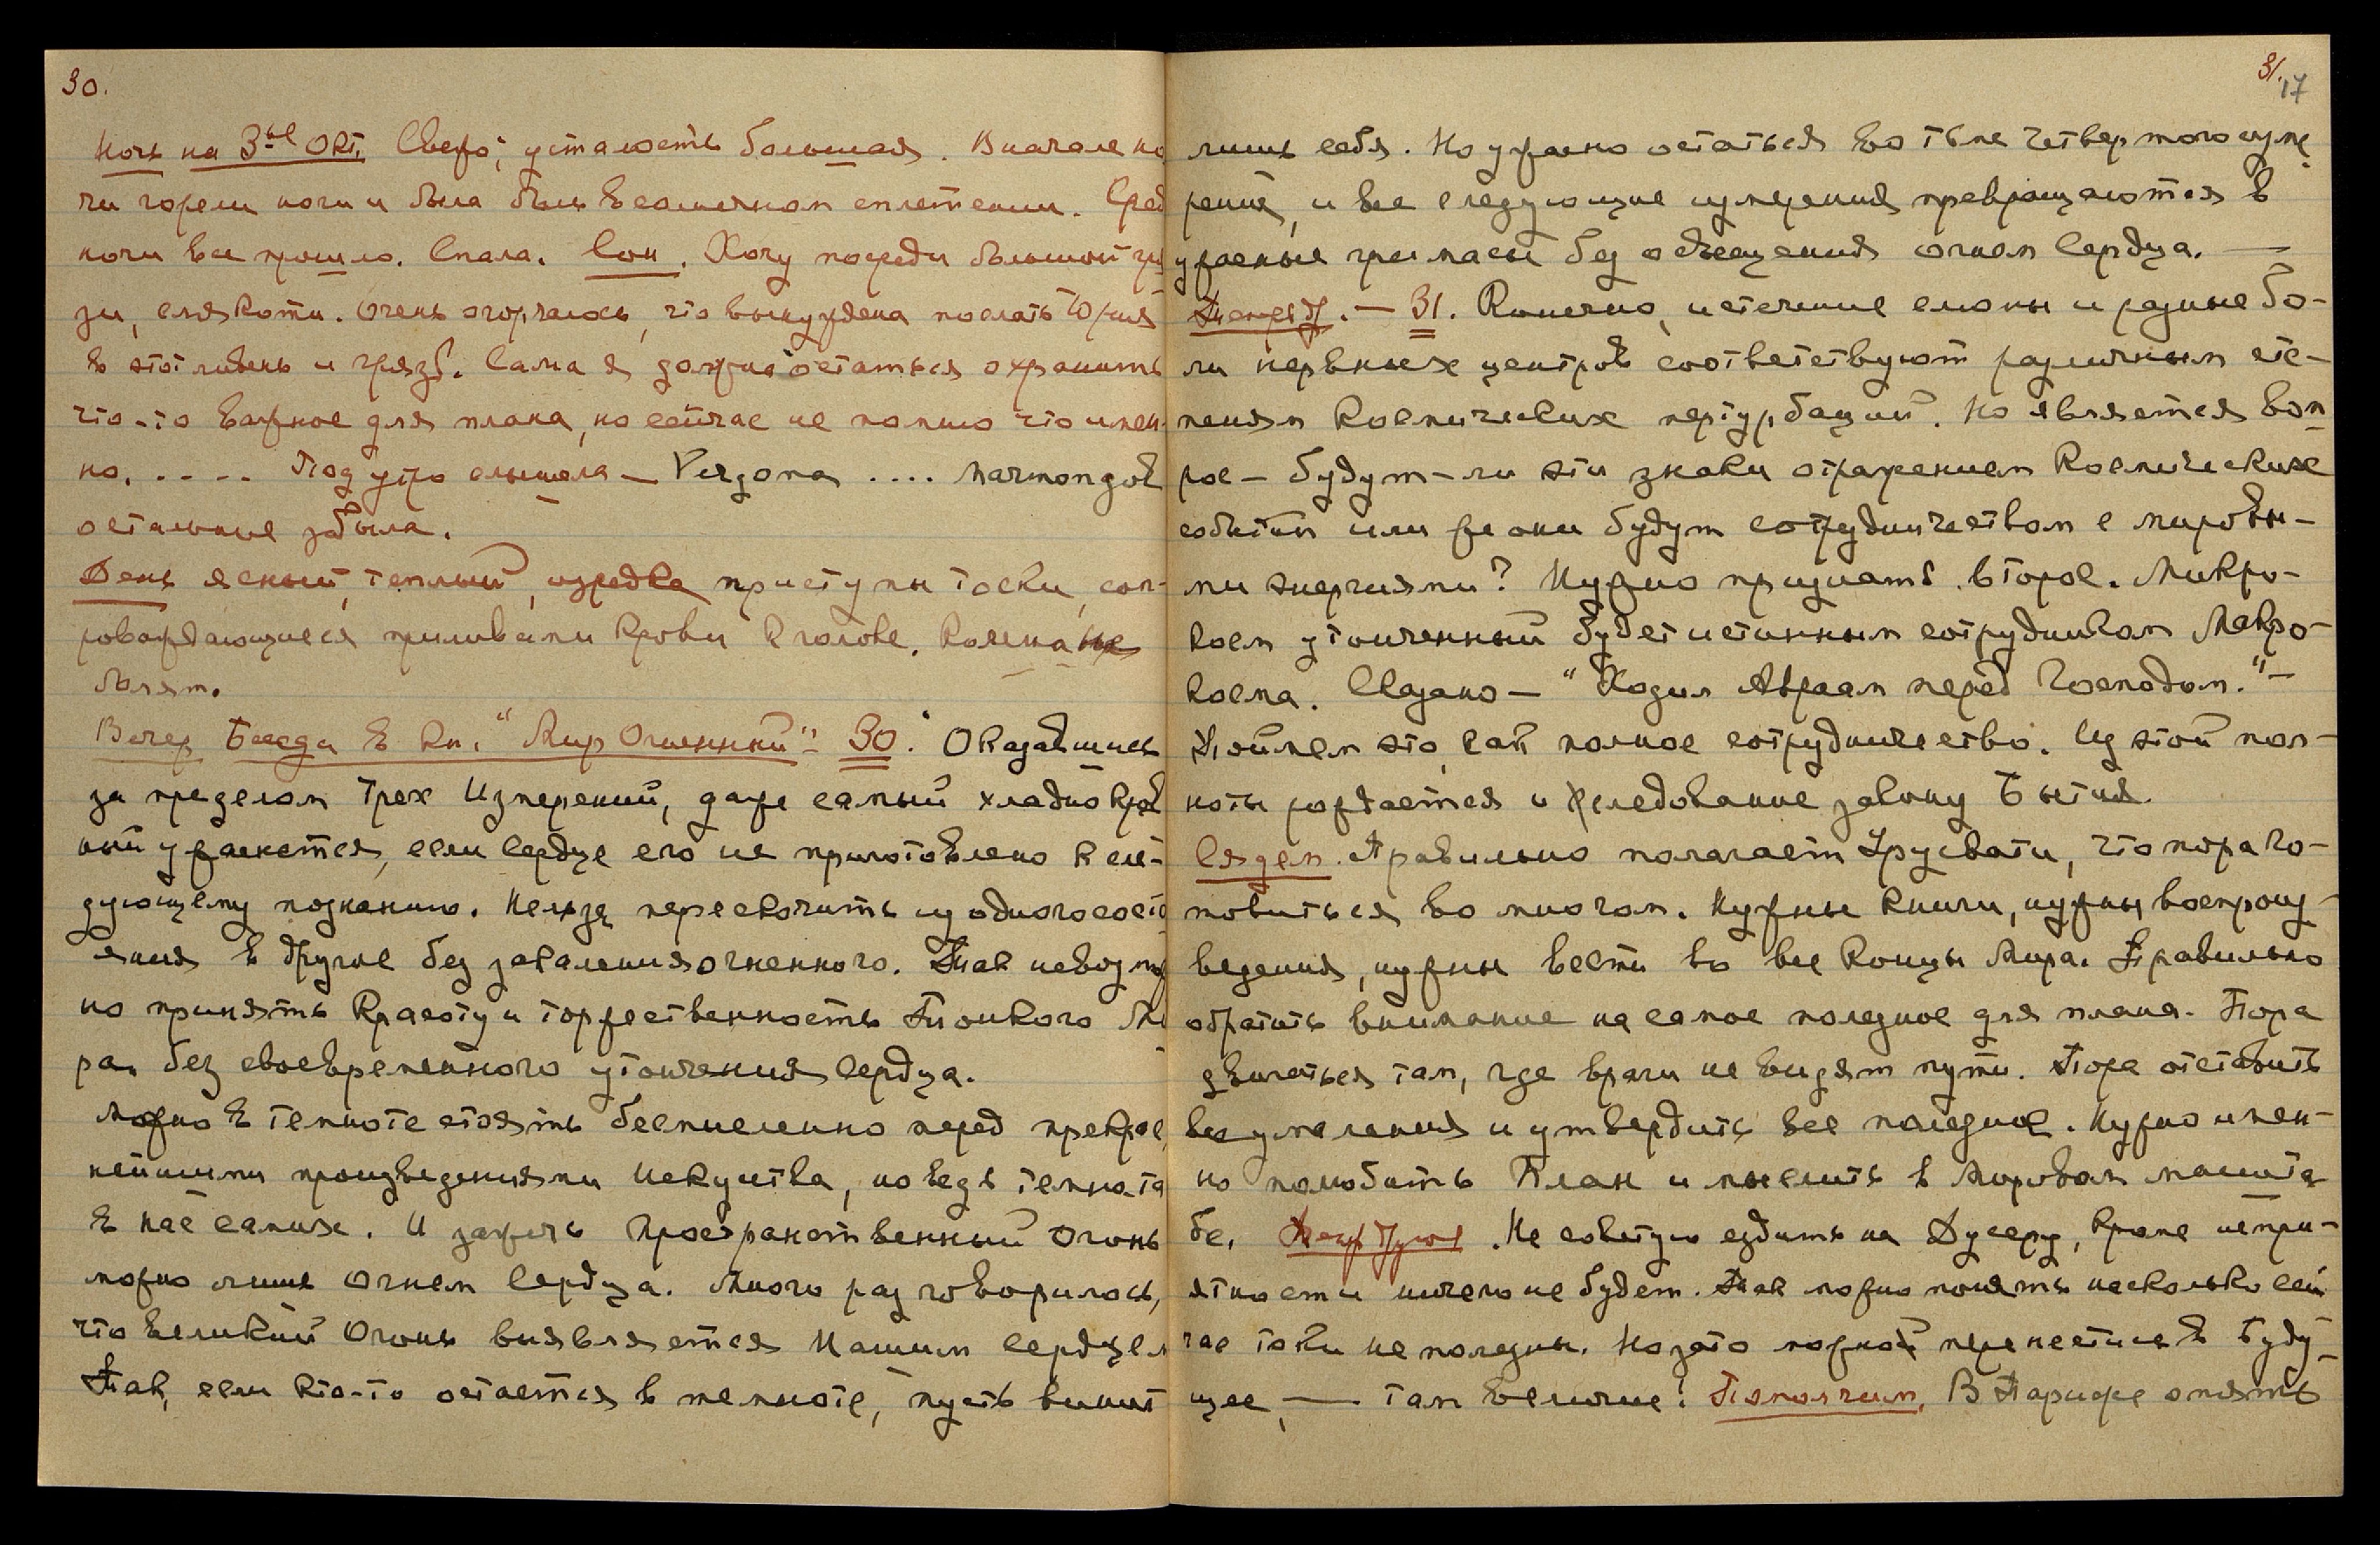 30.
Ночь на 3ье Окт. Свежо, усталость большая. В начале но
чи горели ноги и была боль в солнечном сплетении. Сред
ночи все прошло. Спала. Сон. Хожу посреди большой гря
зи, слякоти. Очень огорчаюсь, что вынуждена послать Юрия
в этот ливень и грязь. Сама я должна остаться охранить
что-то важное для плана, но сейчас не помню что имен-
но. .... Под утро слышала — Vergona .... Marmongob
остальные забыла.
День ясный, теплый, изредка приступы тоски, соп-
ровождающиеся приливами крови к голове. Колена не
болят.
Вечер Беседа в кн. "Мир Огненный" — 30. Оказавшись
за пределом Трех Измерений, даже самый хладнокров
ный ужаснется, если сердце его не приготовлено к сле-
дующему познанию. Нельзя перескочить из одного состо
яния в другое без закаления огненного. Так невозмож
но принять красоту и торжественность Тонкого Ми
ра, без своевременного утончения сердца.
Можно в темноте стоять бессмысленно перед прекрас
нейшими произведениями Искусства, но ведь темнота
в нас самих. И зажечь Пространственный Огонь
можно лишь Огнем Сердца. Много раз говорилось,
что великий Огонь выявляется Нашим сердцем
Так, если кто-то остается в темноте, пусть винит
31.
17
лишь себя. Но ужасно остаться во тьме четвертого изме
рения, и все следующие измерения превращаются в
ужасные гримасы без освещения огнем Сердца. —
31. Конечно, истечение слюны и разные бо-
ли нервных центров соответствуют различным сте-
пеням Космических пертурбаций. Но является воп
рос — будут-ли эти знаки отражением Космических
событий или же они будут сотрудничеством с мировы-
ми энергиями? Нужно признать второе. Микро-
косм утонченный будет истинным сотрудником Макро-
косма. Сказано — "Ходил Авраам перед Господом." —
Поймем это, как полное сотрудничество. Из этой пол-
ноты рождается и следование закону Бытия.
Сядем. Правильно полагает Урусвати, что пора го-
товиться во многом. Нужны книги, нужны воспроиз-
ведения, нужны вести во все концы Мира. Правильно
обратить внимание на самое полезное для плана. Пора
двигаться там, где враги не видят пути. Пора отставить
все умаления и утвердить все полезное. Нужно имен-
но полюбить План и мыслить в Мировом масшта-
бе. Не советую ездить на Дусеру, кроме непри-
ятности ничего не будет. Так можно понять насколько сей
час токи не полезны. Но зато можно перенестись в Буду-
щее, — там величие! Помолчим. В Париже опять